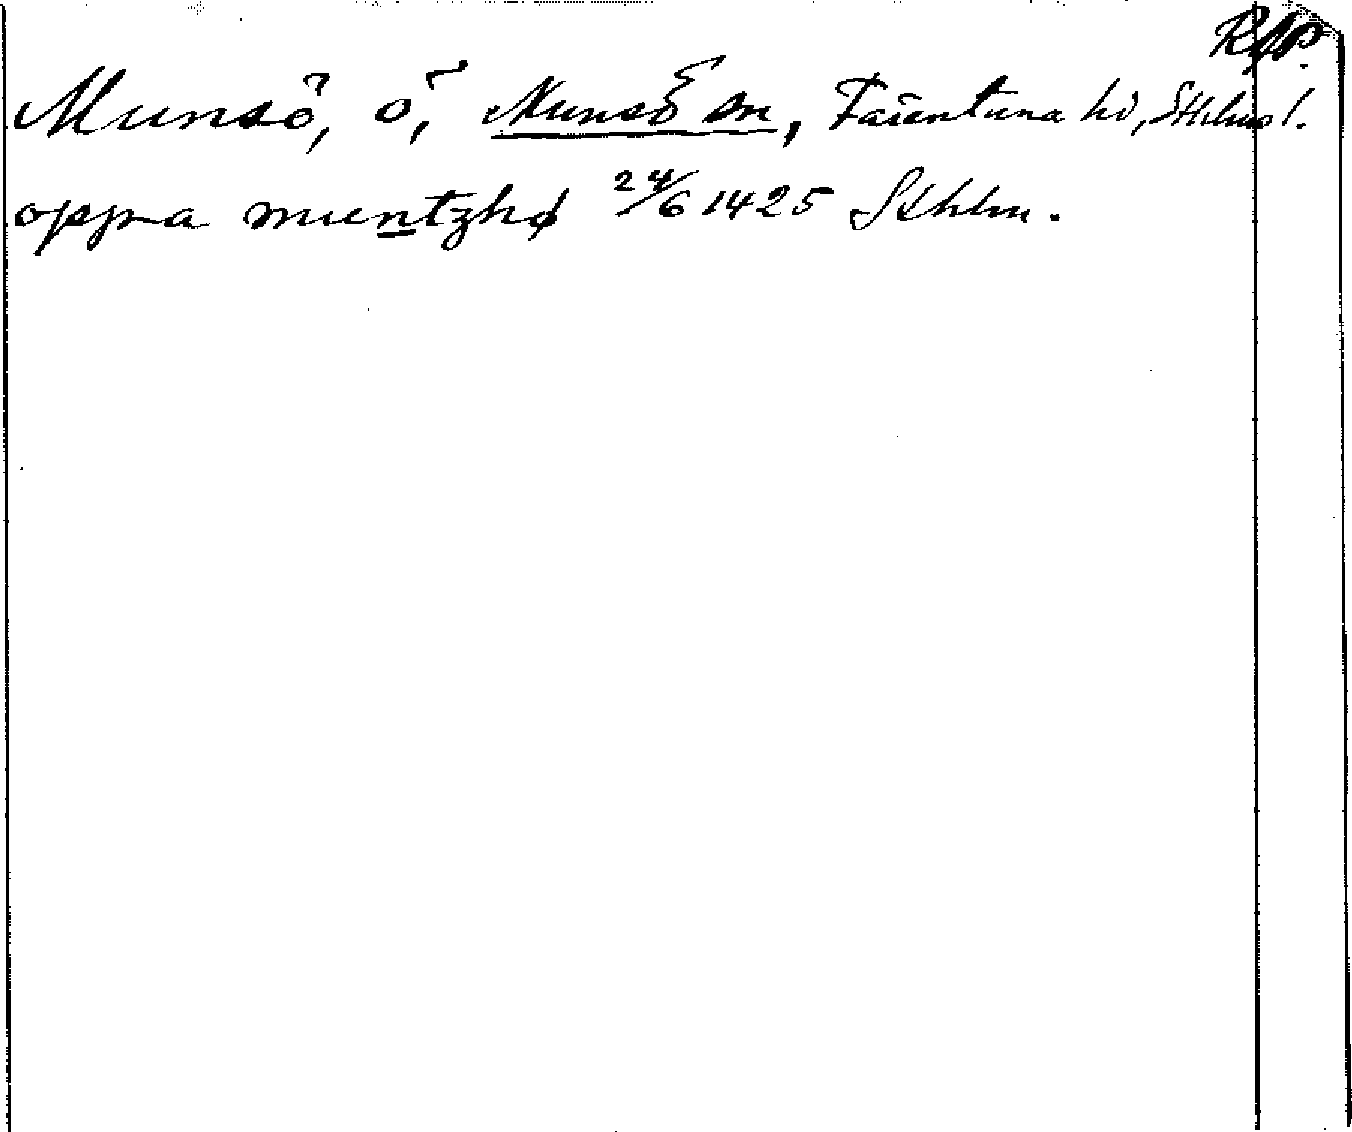 RAp.
Munsö, ö, Munsö sn, Färentuna hd, Sthlms l.
oppa muntzhø 24/6 1425 Sthlm.